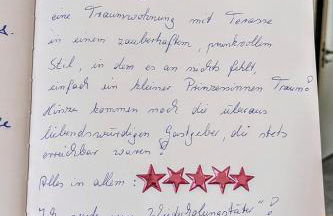 eine Traumwohnung mit Terasse
in einem zauberhaften, prunkvollem
Stil, in dem es an nichts fehlt,
einfach ein kleiner Prinzessinnen Traum!
Hinzu kommen noch die überaus
liebenswürdigen Gastgeber, die stets
erreichbar waren!
Alles in allem:
"Wiederholungstäter"!